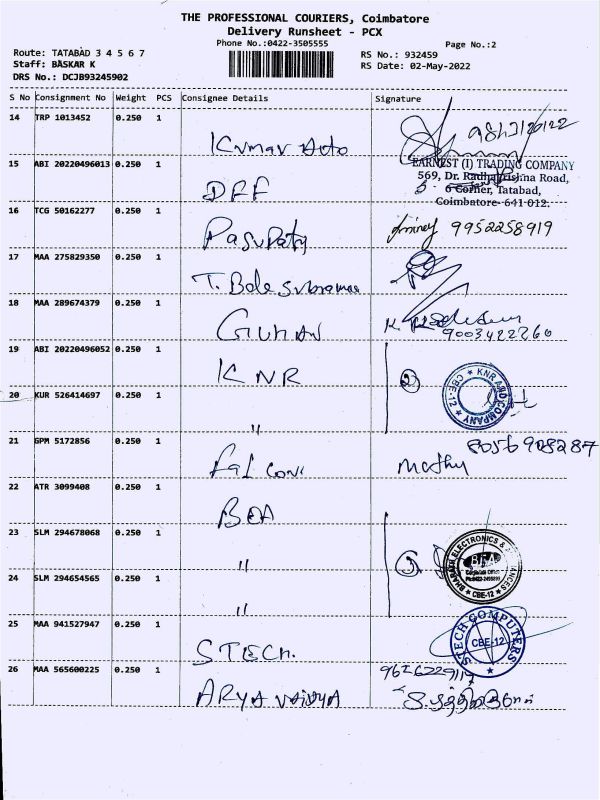 THE PROFESSIONAL COURIERS, Coimbatore
Delivery Runsheet - PCX
Phone No.:0422-3505555
Page No.:2
Route: TATABAD 3 4 5 6 7
Staff: BASKAR K
DRS No.: DCJB93245902
RS No.: 932459
RS Date: 02-May-2022
S No Consignment No Weight PCS Consignee Details Signature
14 TRP 1013452 0.250 1 Kumar Auto
15 ABI 20220496013 0.250 1 DFF
EARNEST (I) TRADING COMPANY
569, Dr. Radhakrishna Road,
6 Corner, Tatabad,
Coimbatore-641 012.
16 TCG 50162277 0.250 1 Pasupaty 9952258919
17 MAA 275829350 0.250 1 T. Bala
18 MAA 289674379 0.250 1 GUHAN K. 9003422260
19 ABI 20220496052 0.250 1 KNR 2
KNR AND COMPANY ★ CBE-12 ★
20 KUR 526414697 0.250 1 "
8056908287
21 GPM 5172856 0.250 1 Falcon Mathy
22 ATR 3099408 0.250 1 BEA
23 SLM 294678068 0.250 1 " 3
BHARATH ELECTRONICS & APPLIANCES
BEA
Corporate Office
★ CBE-12 ★
24 SLM 294654565 0.250 1 "
25 MAA 941527947 0.250 1 STECH.
STECH COMPUTERS
CBE-12
26 MAA 565600225 0.250 1 ARYA VAIDYA